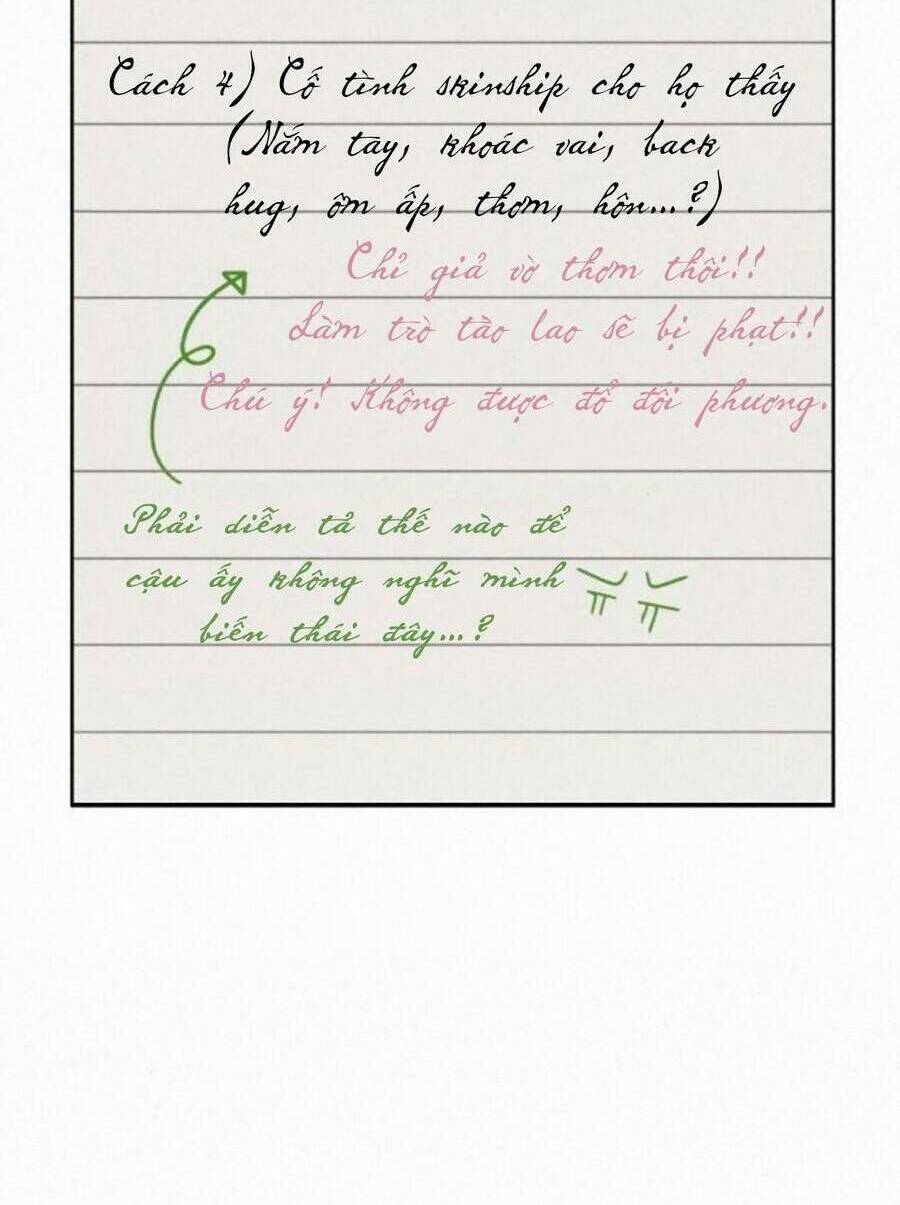 Cách 4) Cố tình skinship cho họ thấy
(Nắm tay, khoác vai, back
hug, ôm ấp, thơm, hôn...?)
Chỉ giả vờ thơm thôi!!
Làm trò tào lao sẽ bị phạt!!
Chú ý! Không được đổ đối phương.
Phải diễn tả thế nào để
cậu ấy không nghĩ mình
biến thái đây...?